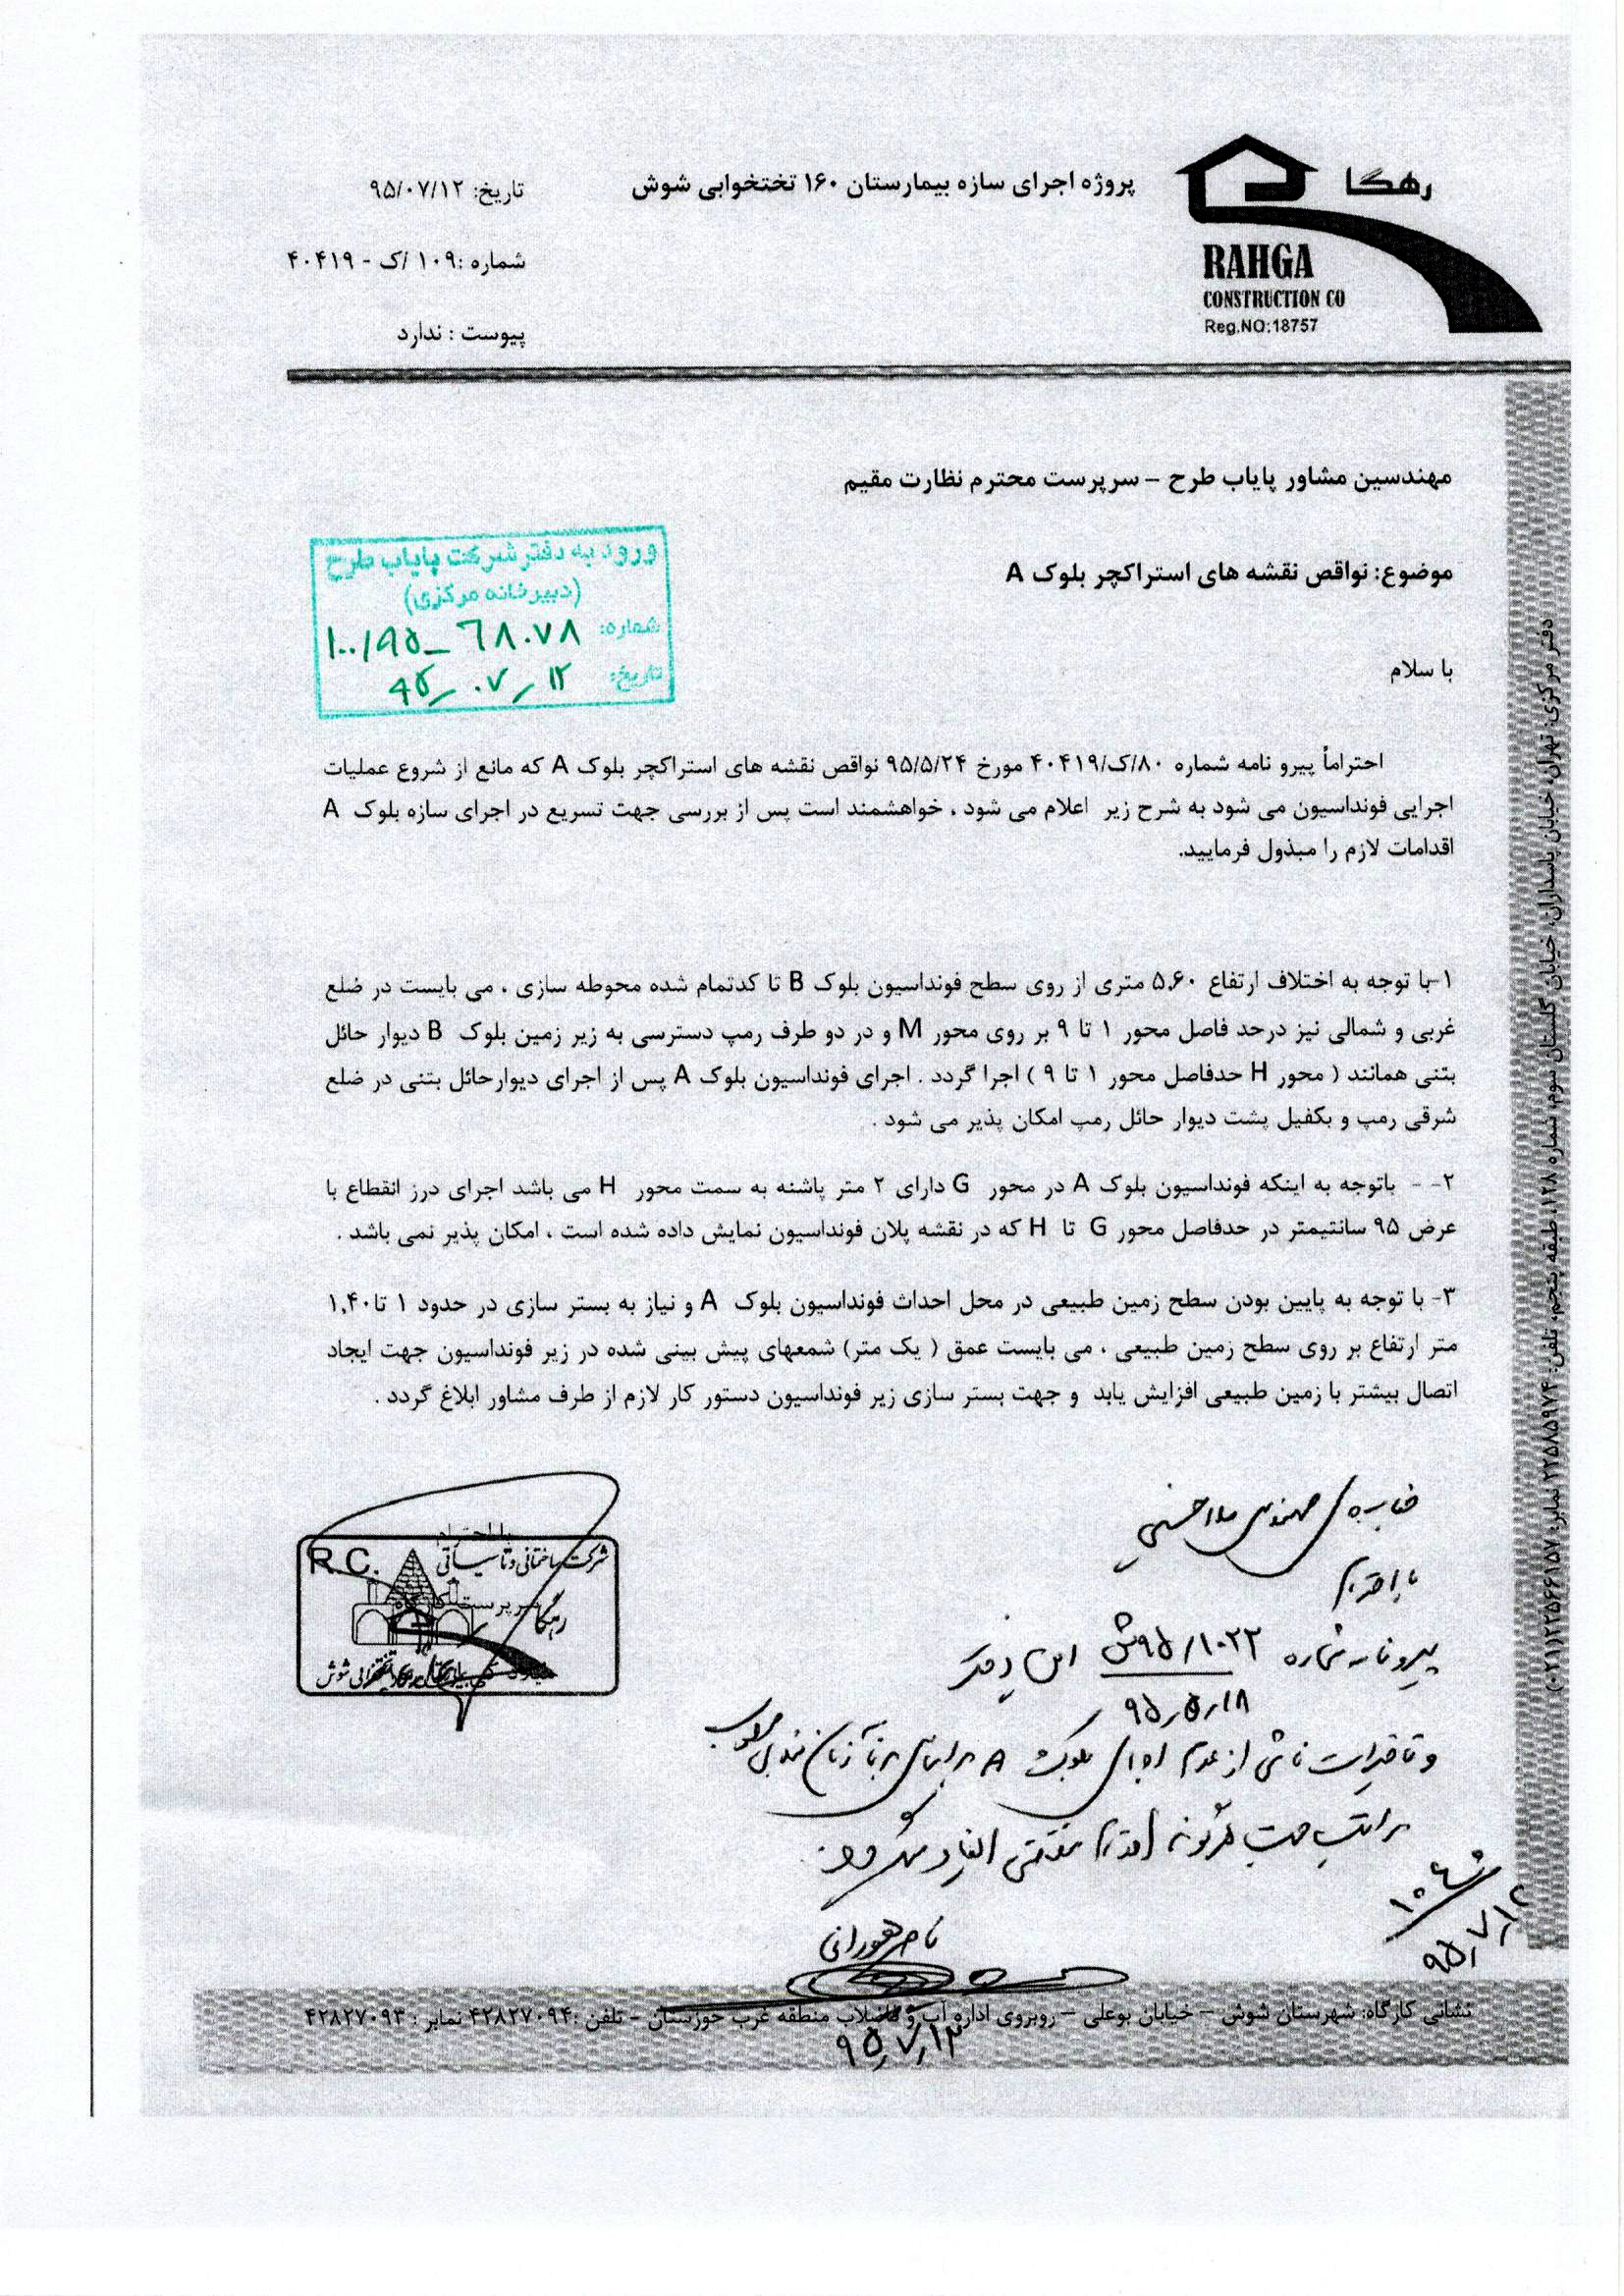 رهگا
RAHGA
CONSTRUCTION CO
Reg.NO:18757
پروژه اجرای سازه بیمارستان ۱۶۰ تختخوابی شوش
تاریخ: ۹۵/۰۷/۱۲
شماره :۱۰۹ /ک - ۴۰۴۱۹
پیوست : ندارد
مهندسین مشاور پایاب طرح – سرپرست محترم نظارت مقیم
ورود به دفتر شرکت پایاب طرح
(دبیرخانه مرکزی)
شماره: ۱۰۰/۹۵ - ۶۸۰۷۸
تاریخ: ۹۵/۰۷/۱۲
موضوع: نواقص نقشه های استراکچر بلوک A
با سلام
احتراماً پیرو نامه شماره ۸۰/ک/۴۰۴۱۹ مورخ ۹۵/۵/۲۴ نواقص نقشه های استراکچر بلوک A که مانع از شروع عملیات
اجرایی فونداسیون می شود به شرح زیر اعلام می شود ، خواهشمند است پس از بررسی جهت تسریع در اجرای سازه بلوک A
اقدامات لازم را مبذول فرمایید.
۱-با توجه به اختلاف ارتفاع ۵.۶۰ متری از روی سطح فونداسیون بلوک B تا کدتمام شده محوطه سازی ، می بایست در ضلع
غربی و شمالی نیز درحد فاصل محور ۱ تا ۹ بر روی محور M و در دو طرف رمپ دسترسی به زیر زمین بلوک B دیوار حائل
بتنی همانند ( محور H حدفاصل محور ۱ تا ۹ ) اجرا گردد . اجرای فونداسیون بلوک A پس از اجرای دیوارحائل بتنی در ضلع
شرقی رمپ و بکفیل پشت دیوار حائل رمپ امکان پذیر می شود .
۲- - باتوجه به اینکه فونداسیون بلوک A در محور G دارای ۲ متر پاشنه به سمت محور H می باشد اجرای درز انقطاع با
عرض ۹۵ سانتیمتر در حدفاصل محور G تا H که در نقشه پلان فونداسیون نمایش داده شده است ، امکان پذیر نمی باشد .
۳- با توجه به پایین بودن سطح زمین طبیعی در محل احداث فونداسیون بلوک A و نیاز به بستر سازی در حدود ۱ تا۱,۴۰
متر ارتفاع بر روی سطح زمین طبیعی ، می بایست عمق ( یک متر) شمعهای پیش بینی شده در زیر فونداسیون جهت ایجاد
اتصال بیشتر با زمین طبیعی افزایش یابد و جهت بستر سازی زیر فونداسیون دستور کار لازم از طرف مشاور ابلاغ گردد .
R.C.
شرکت ساختمانی و تاسیساتی
رهگا
جناب آقای مهندس ملاحسنی
با احترام
پیرو نامه شماره ۹۵/۱۰۲۲ش این دفتر
۹۵/۵/۱۸
و تاخیرات ناشی از عدم اجرای بلوک A
مراتب جهت هرگونه اقدام مقتضی
ناصر
۹۵/۷/۱۲
۹۵/۷/۱۲
دفتر مرکزی: تهران، خیابان پاسداران، خیابان گلستان سوم، شماره ۱۲۸، طبقه پنجم، تلفن: ۲۲۵۸۵۹۷۴ نمابر: ۲۲۵۶۶۱۵۷(۰۲۱)
نشانی کارگاه: شهرستان شوش – خیابان بوعلی – روبروی اداره آب و فاضلاب منطقه غرب خوزستان – تلفن :۴۲۸۲۷۰۹۴ نمابر : ۴۲۸۲۷۰۹۳